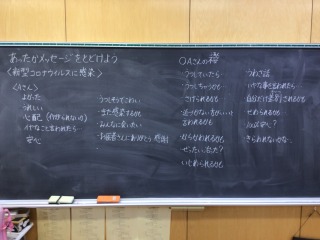 あったかメッセージをとどけよう
〈新型コロナウイルスに感染〉
〈Aさん〉
よかった
うれしい
心配
イヤなこと言われたら
安心
うつしそうでこわい
また感染するかも
みんなに会いたい
お医者さんにありがとう 感謝
○Aさんの
うつしていたら
うつしちゃうかも
さけられるかも
近づかない方がいいと
言われるかも
からかわれるかも
ぜったい、心た?
いじめられるかも
うわさ話
いやな事を言われたら
自分だけ差別されるかも
せめられるかも
安心?
きらわれないかな…